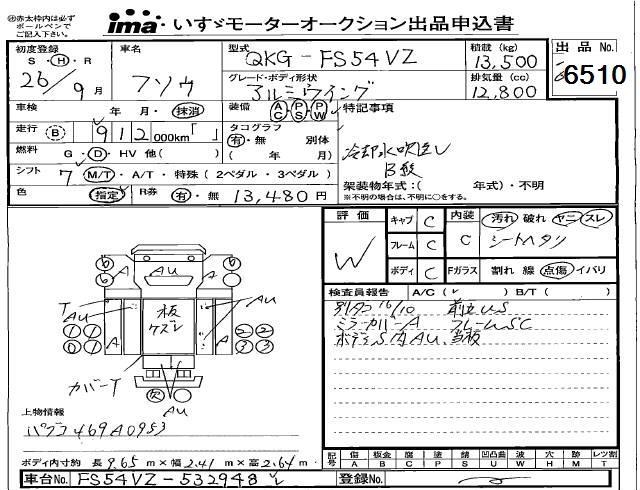 ㊟赤太枠内は必ずボールペンでご記入下さい。
ima いすゞモーターオークション出品申込書
初度登録 車名 型式 QKG-FS54VZ 積載(kg) 13,500 出品No.
S・H・R 26/9月 フソウ
グレード・ボディ形状 アルミウイング 排気量(cc) 12,800
6510
車検 年 月・抹消 装備 AC PS PW 特記事項
走行 B 912 000km「 」 タコグラフ 有・無 別体
(年 月)
燃料 G・D・HV 他( )
冷却水吹返し
B級
シフト 7 M/T・A/T・特殊(2ペダル・3ペダル)
架装物年式:( 年式)・不明
※不明の場合は、不明に○をする。
色 指定 R券 有・無 13,480円
評価 W キャブ C フレーム C ボディ C
内装 C 汚れ 破れ ヤニ スレ
シートヘタリ
Fガラス 割れ 線 点傷 イバリ
検査員報告 A/C( ) B/T( )
別タコ 16/10 前立US
ミラーカバーA フレームSC
ボデーS内AU、当板
6 6 A AU A 6
T AU 板 ケズレ A AU
1 1 A A 2 2
0 1 3 3
カバーT
欠 AU
上物情報
パブコ 469A0953
ボディ内寸約 長 9.65 m×幅 2.41 m×高 2.64 m
記号 傷 A 板金 B 腐 C 塗 P 錆 S 凹凸曲 U 波 W 穴 H 跡 M レツ割 T
車台No. FS54VZ-532948 登録No.